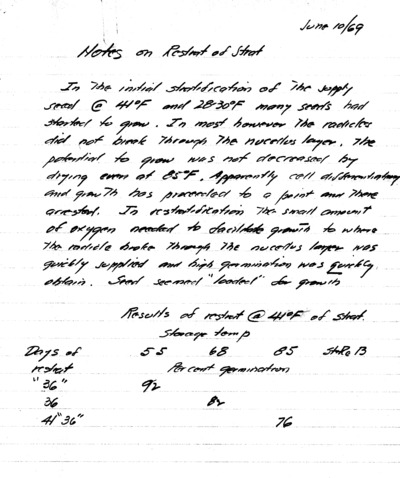 June 10/69
Notes on Restrat of Strat
In the initial stratification of the supply
seed @ 41°F and 28-30°F many seeds had
started to grow. In most however the radicles
did not break through the nucellus layer. The
potential to grow was not decreased by
drying even at 85°F. Apparently cell differentiation
and growth has proceeded to a point and there
arrested. In restratification the small amount
of oxygen needed to facilitate growth to where
the radicle broke through the nucellus layer was
quickly supplied and high germination was quickly
obtain. Seed seemed "loaded" for growth
Results of restrat @ 41°F of strat.
Storage temp
Days of 55 68 85 13
restrat Percent germination
"36" 92
36 82
41 "36" 76